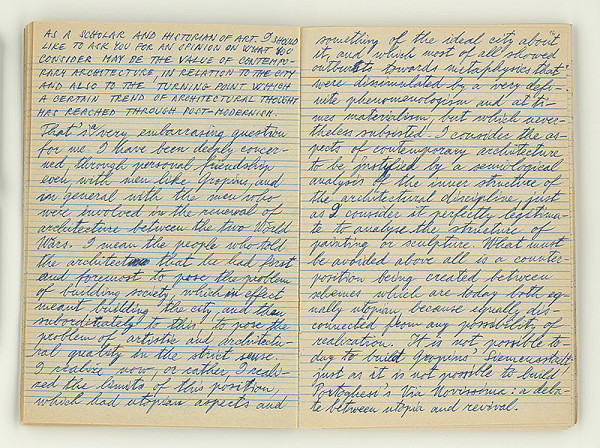 AS A SCHOLAR AND HISTORIAN OF ART. I SHOULD
LIKE TO ASK YOU FOR AN OPINION ON WHAT YOU
CONSIDER MAY BE THE VALUE OF CONTEMPO-
RARY ARCHITECTURE, IN RELATION TO THE CITY
AND ALSO TO THE TURNING POINT WHICH
A CERTAIN TREND OF ARCHITECTURAL THOUGHT
HAS REACHED THROUGH POST-MODERNISM.
That's a very embarrasing question
for me I have been deeply concer-
ned through personal friendship
even with men like Gropius, and
in general with the men who
were involved in the renewal of
architecture between the two World
Wars. I mean the people who told
the architect that he had first
and foremost to pose the problem
of building society, which in effect
meant building the city and then
subordinately to this, to pose the
problem of artistic and architectu-
ral quality in the strict sense.
I realize now, or rather I reali-
zed the limits of this position,
which had utopian aspects and
something of the ideal city about
it, and which most of all showed
outbursts towards metaphysics that
were dissimulated by a very defi-
nite phenomenologism and at ti-
mes materialism, but which never-
theless subsisted. I consider the as-
pects of contemporary architecture
to be justified by a semiological
analysis of the inner structure of
the architectural discipline, just
as I consider it perfectly legitima-
te to analyse the structure of
painting or sculpture. What must
be avoided above all is a counter-
position being created between
schemes which are today both eq-
ually utopian, because equally dis-
connected from any possibility of
realization. It is not possible to-
day to build Gropius' Siemensstadt
just as it is not possible to build
Portoghesi's Via Novissima: a deba-
te between utopia and revival.